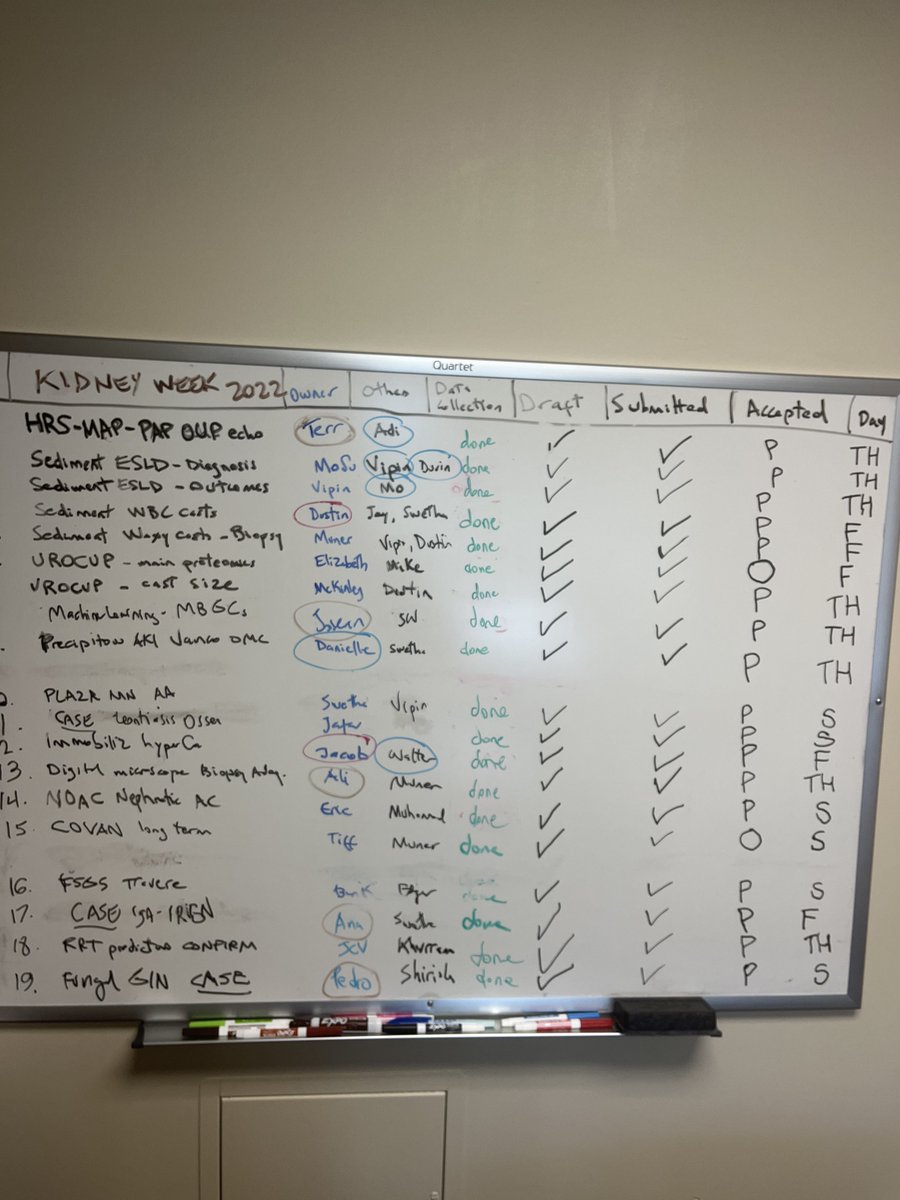 Quartet
KIDNEY WEEK 2022 Owner Other Data Collection Draft Submitted Accepted Day
HRS-MAP-PAP echo Terr Adi done ✓ ✓ P TH
Sediment ESLD-Diagnosis MoSu Vipin Dustin done ✓ ✓ P TH
Sediment ESLD - Outcomes Vipin Mo done ✓ ✓ P TH
Sediment WBC casts Dustin Jay, Swetha done ✓ ✓ P F
Sediment Waxy casts - Biopsy Muner Vipi, Dustin done ✓ ✓ P F
UROCUP - main proteomics Elizabeth Mike done ✓ ✓ O F
UROCUP - cast size McKinley Dustin done ✓ ✓ P TH
Machine learning - MBGCs SW done ✓ ✓ P TH
AKI Vanco OMC Danielle Swetha done ✓ ✓ P TH
PLA2R MN AA Swetha Vipin done ✓ ✓ P S
1. CASE Leontiasis Ossea Jafar done ✓ ✓ P S
2. Immobiliz hyperCa Jacob Walter done ✓ ✓ P F
13. Digital microscope Biopsy Adeq. Ali Muner done ✓ ✓ P TH
14. NOAC Nephrotic AC Eric Muhannad done ✓ ✓ P S
15. COVAN long term Tiff Muner done ✓ ✓ O S
16. FSGS Travere done ✓ ✓ P S
17. CASE IgA-IRGN Ana Swetha done ✓ ✓ P F
18. RRT predictors CONFIRM JCV done ✓ ✓ P TH
19. Fungal GIN CASE Pedro Shirish done ✓ ✓ P S